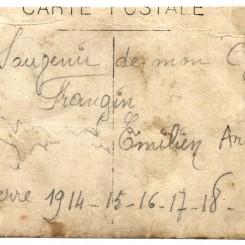 CARTE POSTALE
Souvenir de mon C
Frangin
Emilien Ar
erre 1914-15-16-17-18-